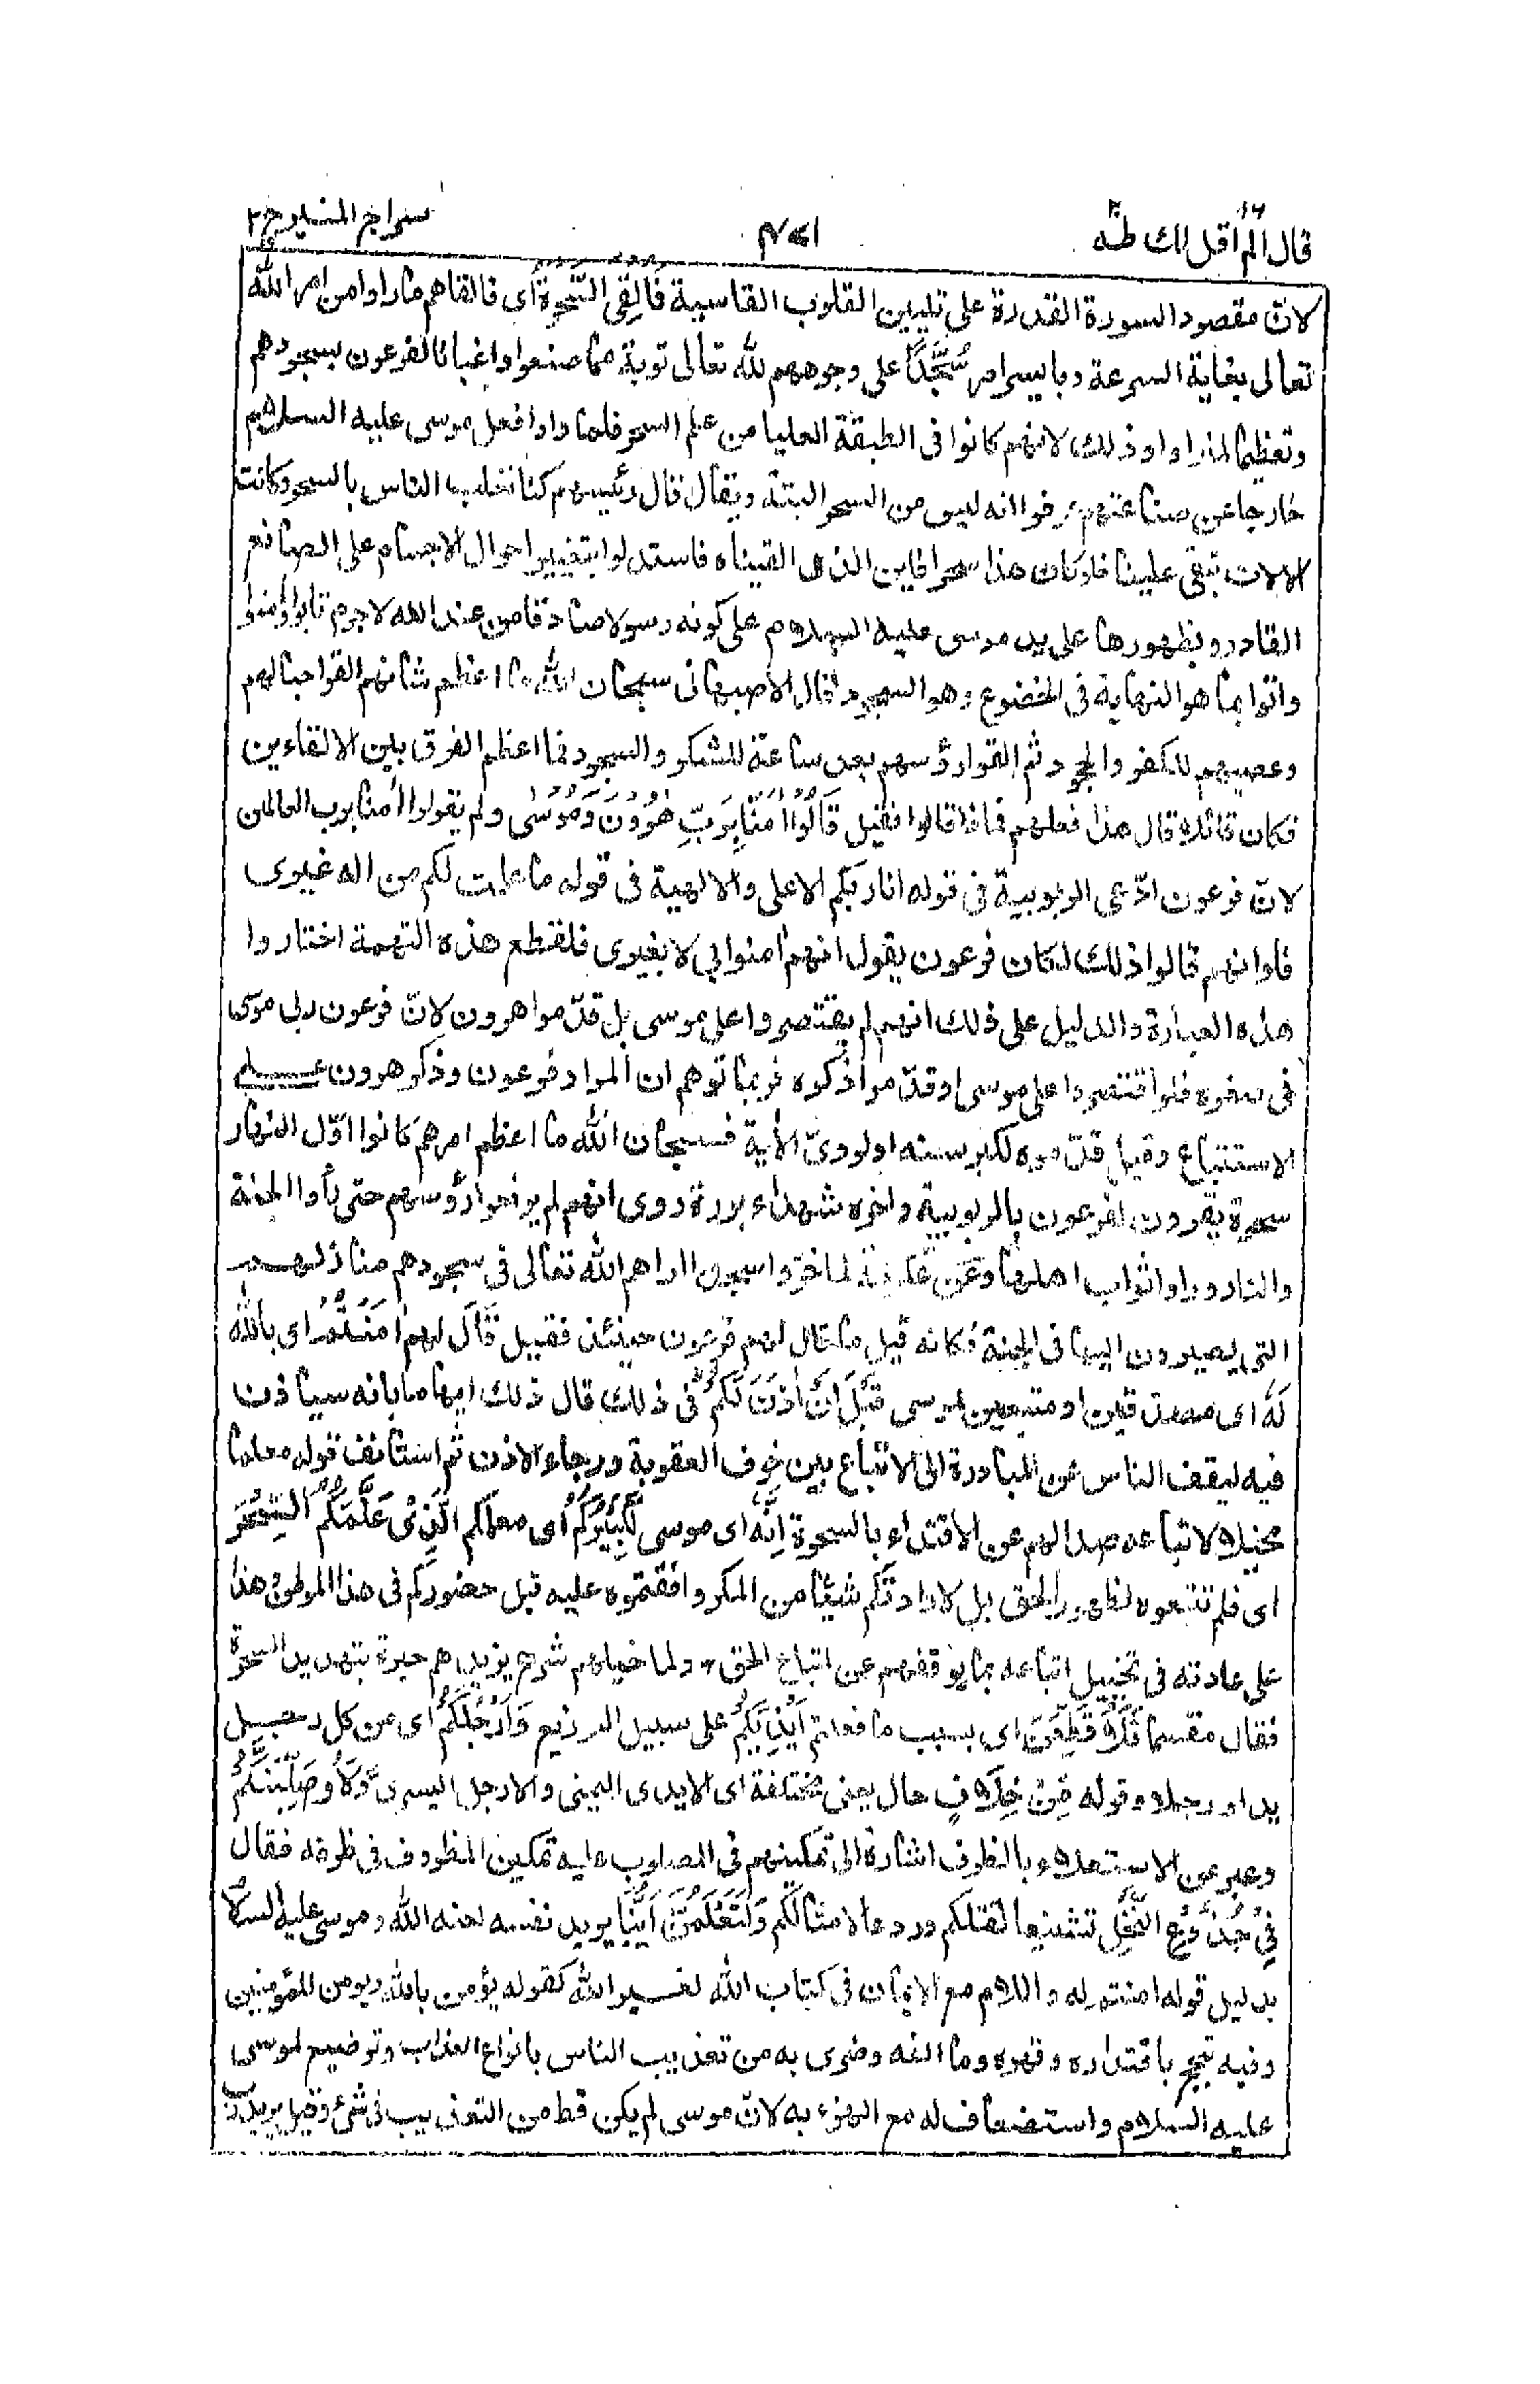 قال الم اقل لك طه
سراج المنير ج ٢
لان مقصود السورة القدرة على تليين القلوب القاسية فَأُلْقِىَ السَّحَرَةُ اى فالقاهم ما راوا من امر الله
تعالى بغاية السرعة وبايسر امر سُجَّدًا على وجوههم لله تعالى توبة مما صنعوا واغبانا لفرعون بسجودهم
وتعظيما لما راوا وذلك لانهم كانوا فى الطبقة العليا من علم السحر فلما راوا فعل موسى عليه السلام
خارجا عن صناعتهم عرفوا انه ليس من السحر البتة ويقال قال رئيسهم كنا نغلب الناس بالسحر وكانت
الالات تبقى علينا فلو كان هذا سحرا فاين الذى القيناه فاستدلوا بتغيير احوال الاجسام على الصانع
القادر وبظهورها على يد موسى عليه السلام على كونه رسولا صادقا من عند الله لا جرم تابوا وأمنوا
واتوا بما هو النهاية فى الخضوع وهو السجود قال الاصبهانى سبحان الله ما اعظم شانهم القوا حبالهم
وعصيهم للكفر والجحود ثم القوا رؤسهم بعد ساعة للشكر والسجود فما اعظم الفرق بين الالقاءين
فكان قائلا قال هذا فعلهم فماذا قالوا فقيل قَالُوْا اٰمَنَّا بِرَبِّ هٰرُوْنَ وَمُوْسٰى ولم يقولوا أمنا برب العالمين
لانّ فرعون ادّعى الربوبية فى قوله انا ربكم الاعلى والالهية فى قوله ما علمت لكم من اله غيرى
فلو انهم قالوا ذلك لكان فرعون يقول انهم أمنوا بي لا بغيرى فلقطع هذه التهمة اختاروا
هذه العبارة والدليل على ذلك انهم لم يقتصروا على موسى بل قدّموا هرون لانّ فرعون ربى موسى
فى صغره فلو اقتصروا على موسى او قدّموا ذكره فربما توهم ان المراد فرعون وذكر هرون على
الاستتباع وقيل قدّموه لكبر سنه او لروىّ الأية فسبحان الله ما اعظم امرهم كانوا اوّل النهار
سحرة يقرون لفرعون بالربوبية واخره شهداء بررة روى انهم لم يرفعوا رؤسهم حتى رأوا الجنة
والنار وراوا ثواب اهلها وعن عكرمة لما خرّوا سجدا اراهم الله تعالى فى سجودهم منازلهم
التى يصيرون اليها فى الجنة فكانه قيل ما قال لهم فرعون حينئذ فقيل قَالَ لهم اٰمَنْتُمْ اى بالله
لَهٗ اى مصدقين او متبعين لموسى قَبْلَ اَنْ اٰذَنَ لَكُمْ فى ذلك قال ذلك ايهاما بانه سياذن
فيه ليقف الناس عن المبادرة الى الاتباع بين خوف العقوبة ورجاء الاذن ثم استأنف قوله معلما
مخيلا لاتباعه صدا لهم عن الاقتداء بالسحرة اِنَّهٗ اى موسى لَكَبِيْرُكُمُ اى معلمكم الَّذِىْ عَلَّمَكُمُ السِّحْرَ
اى فلم تتبعوه لظهور الحق بل لارادتكم شيئا من المكر وافقتموه عليه قبل حضوركم فى هذا الموطن هذا
على عادته فى تخييل اتباعه بما يوقفهم عن اتباع الحق ولما خيلهم شرع يزيدهم حيرة بتهديد السحرة
فقال مقسما فَلَاُقَطِّعَنَّ اى بسبب ما فعلتم اَيْدِيَكُمْ على سبيل التوزيع وَاَرْجُلَكُمْ اى من كل رجل
يدا ورجلا وقوله مِّنْ خِلَافٍ حال يعنى مختلفة اى الايدى اليمنى والارجل اليسرى وَّلَاُوصَلِّبَنَّكُمْ
وعبر عن الاستعلاء بالظرف اشارة الى تمكينهم فى المصلوب عليه تمكين المظروف فى ظرفه فقال
فِىْ جُذُوْعِ النَّخْلِ تشنيعا لقتلكم وردعا لامثالكم وَلَتَعْلَمُنَّ اَيُّنَا يريد نفسه لعنه الله وموسى عليه السلام
بدليل قوله امنتم له واللام مع الايمان فى كتاب الله لغير الله كقوله يؤمن بالله ويومن للمؤمنين
وفيه تبجح باقتداره وقهره وما الفه وضرى به من تعذيب الناس بانواع العذاب وتوضيع لموسى
عليه السلام واستضعاف له مع الهزء به لانّ موسى لم يكن قط من التعذيب فى شئ وقيل يريد ربّ